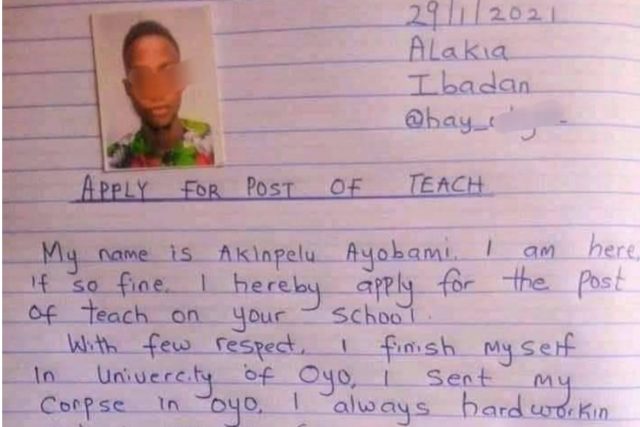 29/1/2021
Alakia
Ibadan
@bay_
APPLY FOR POST OF TEACH
My name is Akinpelu Ayobami. I am here,
if so fine. I hereby apply for the post
of teach on your school.
With few respect, I finish my self
in Univercity of Oyo, I sent my
Corpse in oyo. I always hardworkin